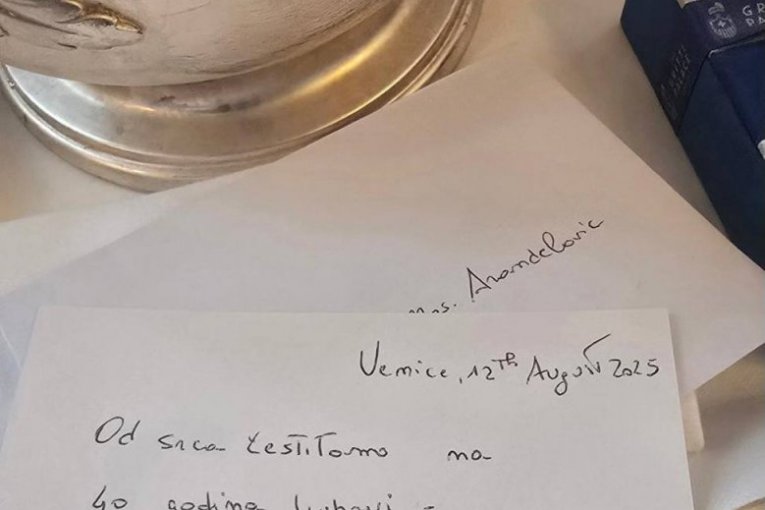 GR
PA
Mrs. Arandelovic
Venice, 12th August 2025
Od srca čestitamo na
40 godina ljubavi -